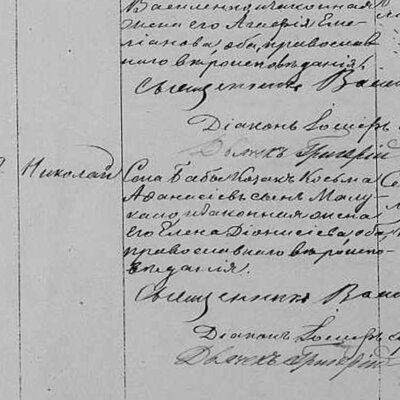 Васильевича и законная
жена его Агафія Еме-
ліанова оба православ-
наго вѣроисповѣданія.
Священникъ
Діаконъ Іосифъ
Дьячекъ Григорій
Николай
Села Бабы Козакъ Косьма
Афанасіевъ сынъ Малу
и законная жена
его Елена Діонисіева оба
православнаго вѣроиспо-
вѣданія.
Священникъ
Діаконъ Іосифъ
Дьячекъ Григорій